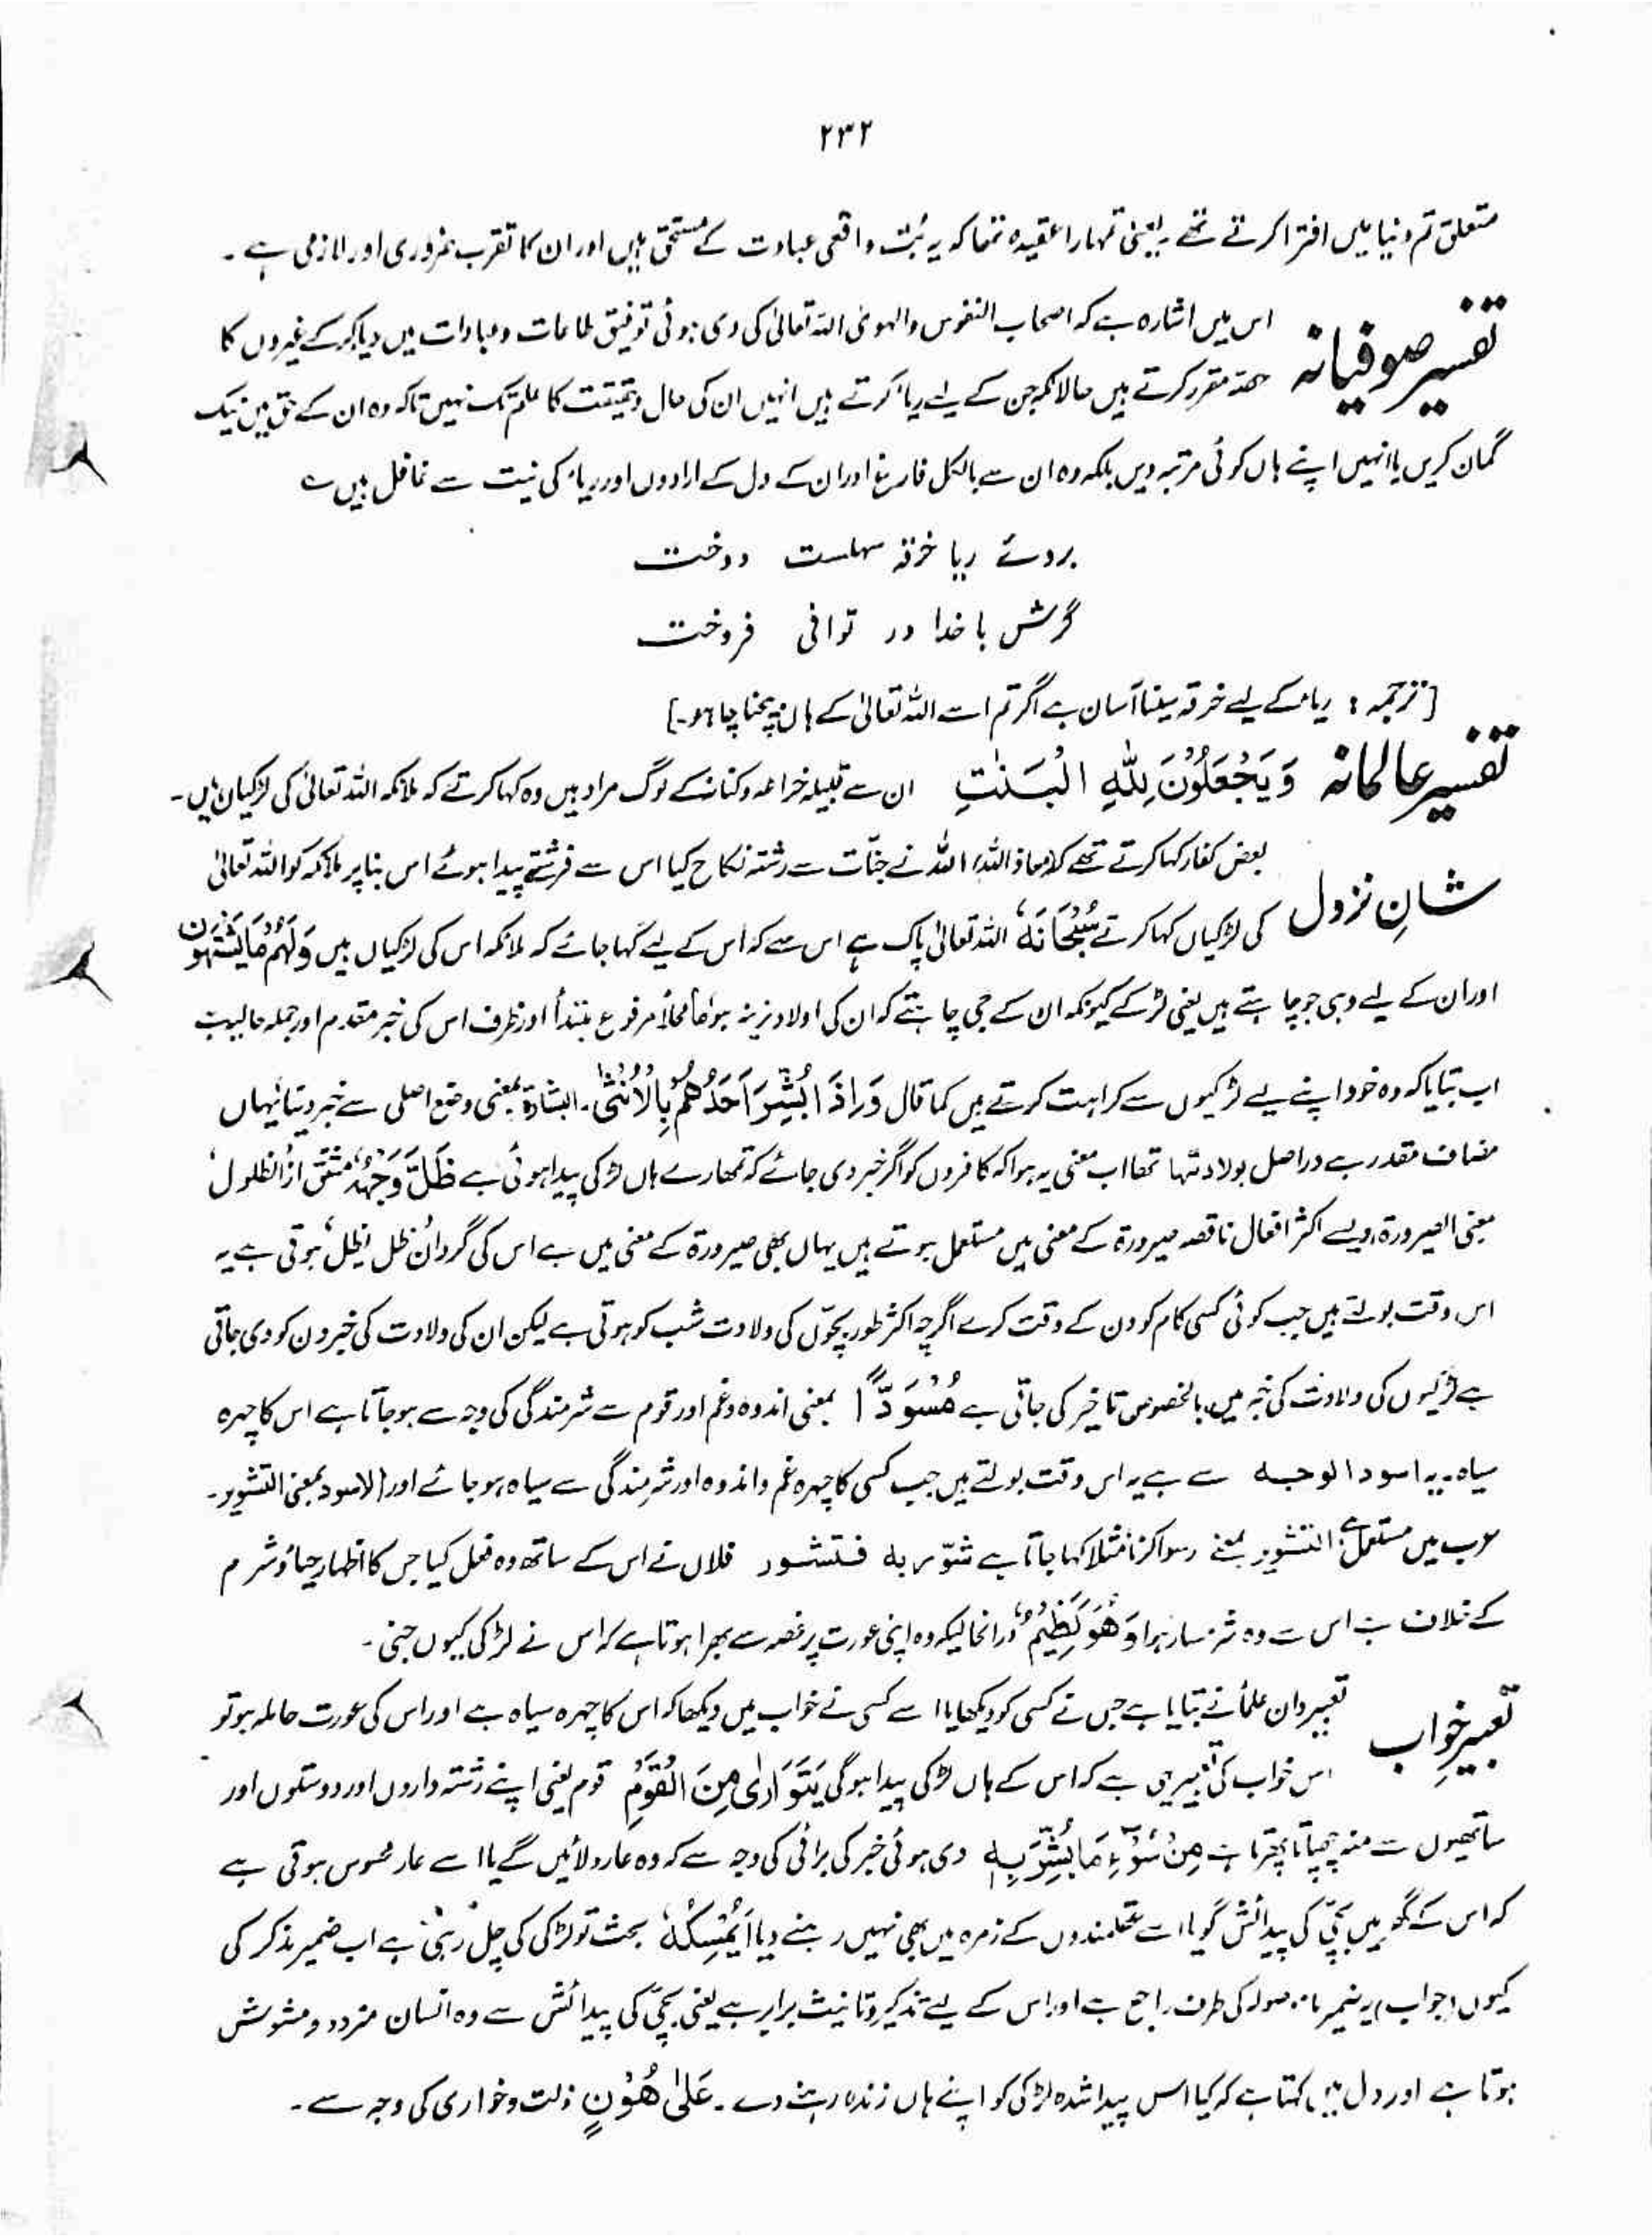 ۲۳۲
متعلق تم دنیا میں افترا کرتے تھے یعنی تمہارا عقیدہ تھا کہ یہ بُت واقعی عبادت کے مستحق ہیں اور ان کا تقرب ضروری اور لازمی ہے۔
تفسیر صوفیانہ اس میں اشارہ ہے کہ اصحاب النفوس والہویٰ اللہ تعالیٰ کی دی ہوئی توفیق طاعات و عبادات میں ریا کر کے غیروں کا
حصہ مقرر کرتے ہیں حالانکہ جن کے لیے ریاء کرتے ہیں انہیں ان کی حال و حقیقت کا علم تک نہیں تاکہ وہ ان کے حق میں نیک
گمان کریں یا انہیں اپنے ہاں کوئی مرتبہ دیں بلکہ وہ ان سے بالکل فارغ اور ان کے دل کے ارادوں اور ریاء کی نیت سے غافل ہیں ؎
بروئے ریا خرقہ سہلست دوخت
گرش با خدا در توانی فروخت
[ترجمہ : ریاء کے لیے خرقہ سینا آسان ہے اگر تم اسے اللہ تعالیٰ کے ہاں بیچنا چاہو۔]
تفسیر عالمانہ وَيَجْعَلُوْنَ لِلّٰهِ الْبَنٰتِ ان سے قبیلہ خزاعہ و کنانہ کے لوگ مراد ہیں وہ کہا کرتے کہ ملائکہ اللہ تعالیٰ کی لڑکیاں ہیں۔
شانِ نزول بعض کفار کہا کرتے تھے کہ (معاذ اللہ) اللہ نے جنّات سے رشتہ نکاح کیا اس سے فرشتے پیدا ہوئے اس بنا پر ملائکہ کو اللہ تعالیٰ
کی لڑکیاں کہا کرتے سُبْحَانَهٗ اللہ تعالیٰ پاک ہے اس سے کہ اس کے لیے کہا جائے کہ ملائکہ اس کی لڑکیاں ہیں وَلَهُمْ مَّا يَشْتَهُوْنَ
اور ان کے لیے وہی جو چاہتے ہیں یعنی لڑکے کیونکہ ان کے جی چاہتے کہ ان کی اولاد نرینہ ہو مَا محلاً مرفوع مبتدأ اور ظرف اس کی خبر مقدم اور جملہ حالیہ ہے
اب بتایا کہ وہ خود اپنے لیے لڑکیوں سے کراہت کرتے ہیں کما قال وَاِذَا بُشِّرَ اَحَدُهُمْ بِالْاُنْثٰى۔ البشارۃ بمعنی وضع اصلی سے خبر دینا یہاں
مضاف مقدر ہے دراصل بولادتہا تھا اب معنی یہ ہوا کہ کافروں کو اگر خبر دی جائے کہ تمھارے ہاں لڑکی پیدا ہوئی ہے ظَلَّ وَجْهُهٗ مشتق از الظلول
بمعنی الصیرورۃ، ویسے اکثر افعال ناقصہ صیرورۃ کے معنی میں مستعمل ہوتے ہیں یہاں بھی صیرورۃ کے معنی میں ہے اس کی گردان ظل یظل ہوتی ہے یہ
اس وقت بولتے ہیں جب کوئی کسی کام کو دن کے وقت کرے اگرچہ اکثر طور بچّوں کی ولادت شب کو ہوتی ہے لیکن ان کی ولادت کی خبر دن کو دی جاتی
ہے لڑکیوں کی ولادت کی خبر میں بالخصوص تاخیر کی جاتی ہے مُسْوَدًّا بمعنی اندوہ و غم اور قوم سے شرمندگی کی وجہ سے ہو جاتا ہے اس کا چہرہ
سیاہ۔ یہ اسود الوجه سے ہے یہ اس وقت بولتے ہیں جب کسی کا چہرہ غم و اندوہ اور شرمندگی سے سیاہ ہو جائے اور الاسود بمعنی التشویر۔
عرب میں مستعمل ہے التشویر بمعنے رسوا کرنا مثلاً کہا جاتا ہے شوّر به فتشور فلاں نے اس کے ساتھ وہ فعل کیا جس کا اظہار حیاء و شرم
کے خلاف ہے اس سے وہ شرمسار ہوا وَهُوَ كَظِيْمٌ درانحالیکہ وہ اپنی عورت پر غصہ سے بھرا ہوتا ہے کہ اس نے لڑکی کیوں جنی۔
تعبیرِ خواب تعبیر دان علماء نے بتایا ہے جس نے کسی کو دیکھا یا اسے کسی نے خواب میں دیکھا کہ اس کا چہرہ سیاہ ہے اور اس کی عورت حاملہ ہو تو
اس خواب کی تعبیر یہی ہے کہ اس کے ہاں لڑکی پیدا ہوگی يَتَوَارٰى مِنَ الْقَوْمِ قوم یعنی اپنے رشتہ داروں اور دوستوں اور
ساتھیوں سے منہ چھپاتا پھرتا ہے مِنْ سُوْٓءِ مَا بُشِّرَ بِهٖ دی ہوئی خبر کی برائی کی وجہ سے کہ وہ عار دلائیں گے یا اسے عار محسوس ہوتی ہے
کہ اس کے گھر میں بچّی کی پیدائش گویا اسے عقلمندوں کے زمرہ میں بھی نہیں رہنے دیا اَيُمْسِكُهٗ بحث تو لڑکی کی چل رہی ہے اب ضمیر مذکر کی
کیوں (جواب) یہ ضمیر ما موصولہ کی طرف راجع ہے اور اس کے لیے تذکیر و تانیث برابر ہے یعنی بچّی کی پیدائش سے وہ انسان متردد و مشوش
ہوتا ہے اور دل میں کہتا ہے کہ کیا اس پیدا شدہ لڑکی کو اپنے ہاں زندہ رہنے دے۔ عَلٰى هُوْنٍ ذلت و خواری کی وجہ سے۔